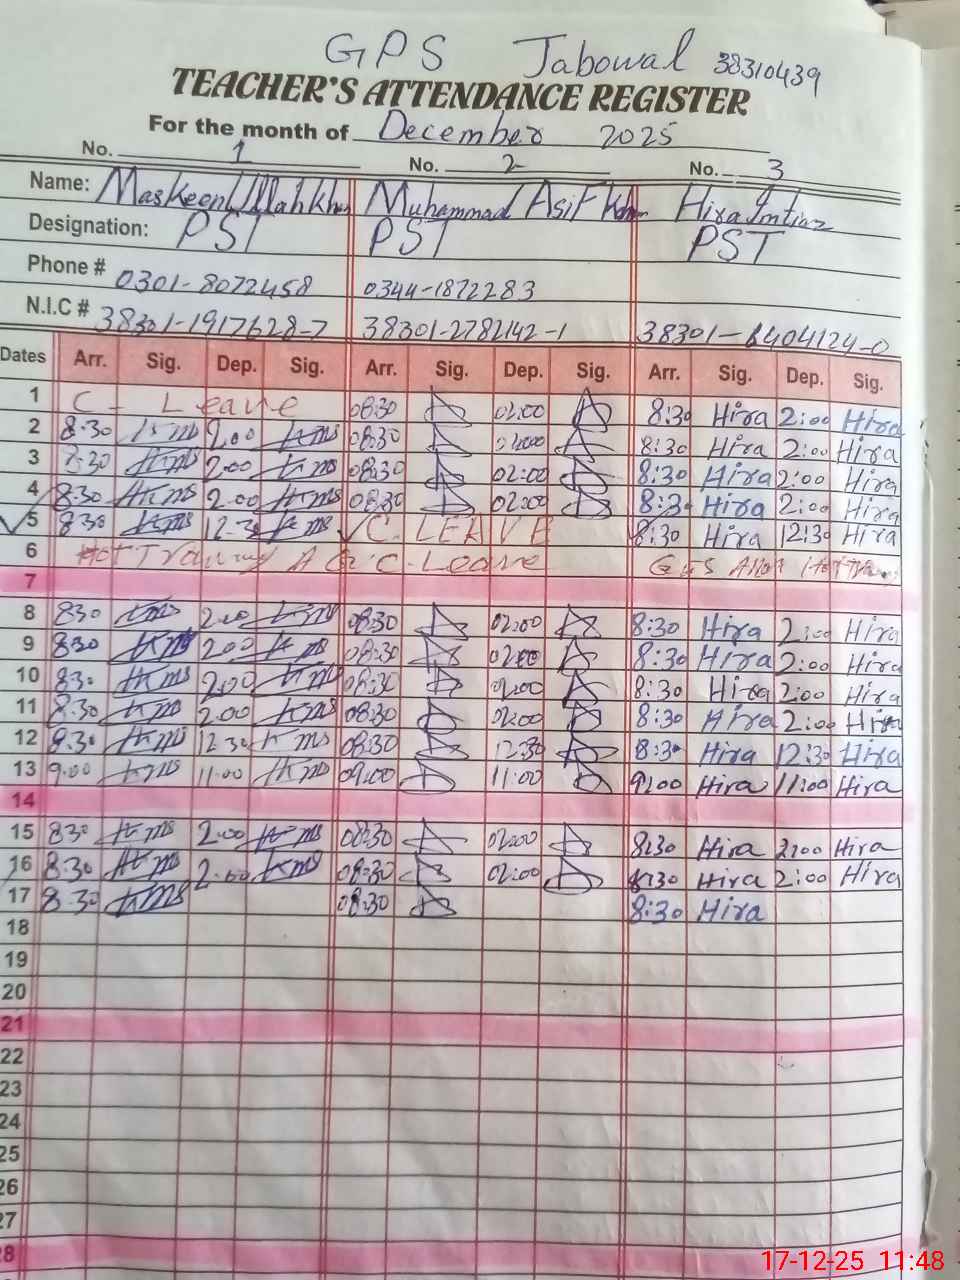 GPS Jabowal 38310439
TEACHER'S ATTENDANCE REGISTER
For the month of December 2025
No. 1 No. 2 No. 3
Name: Maskeen Ullah khan Muhammad Asif Khan Hira Imtiaz
Designation: PST PST PST
Phone # 0301-8072458 0344-1872283
N.I.C # 38301-1917628-7 38301-2782142-1 38301-6404124-0
Dates Arr. Sig. Dep. Sig. Arr. Sig. Dep. Sig. Arr. Sig. Dep. Sig.
1 C- Leave 08:30 02:00 8:30 Hira 2:00 Hira
2 8:30 2.00 08:30 02:00 8:30 Hira 2:00 Hira
3 8:30 2.00 08:30 02:00 8:30 Hira 2:00 Hira
4 8:30 2.00 08:30 02:00 8:30 Hira 2:00 Hira
5 8:30 12.30 C. LEAVE 8:30 Hira 12:30 Hira
6 Training C. Leave
7
8 8:30 2.00 08:30 02:00 8:30 Hira 2:00 Hira
9 8:30 2.00 08:30 02:00 8:30 Hira 2:00 Hira
10 8:30 2.00 08:30 02:00 8:30 Hira 2:00 Hira
11 8:30 2.00 08:30 02:00 8:30 Hira 2:00 Hira
12 8:30 12.30 08:30 12:30 8:30 Hira 12:30 Hira
13 9.00 11.00 09:00 11:00 9:00 Hira 11:00 Hira
14
15 8:30 2.00 08:30 02:00 8:30 Hira 2:00 Hira
16 8:30 2.00 08:30 02:00 8:30 Hira 2:00 Hira
17 8:30 08:30 8:30 Hira
18
19
20
21
22
23
24
25
26
27
28
17-12-25 11:48